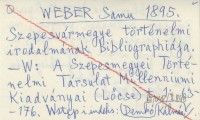 WEBER Samu 1895.
Szepesvármegye történelmi
irodalmának Bibliographiája.
— W: A Szepesmegyei Törté-
nelmi Társulat Millenniumi
Kiadványai (Lőcse)
-176.